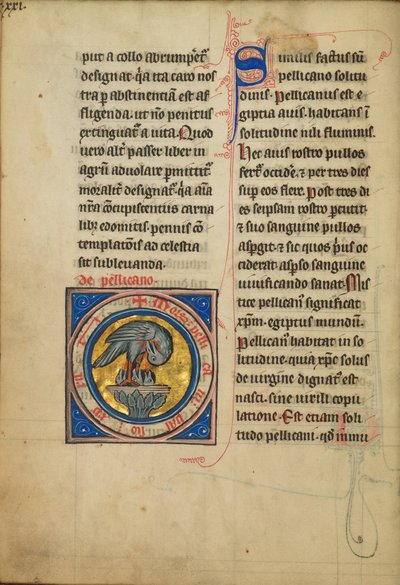 xxi.
put a collo abrumpet᷑
designat. q̇a ita caro nos
tra p abstinentiam est af
fligenda. ut no᷑n penitus
extinguat᷑ a uita. Quod
uero alt᷑ passer liber in
agrū aduolare pmittit᷑.
moralit᷑ designat᷑. q̇a aīa
nr̄a cōcupiscentiis carna
libꝫ edomitis pennis cō
templatōis ad celestia
sit subleuanda.
de pellicano.
Similis factus sū
pellicano solitu
dinis. Pellicanus est e
giptia auis. habitans ī
solitudine nili fluminis.
Hec auis rostro pullos
fert᷑ occide᷑. ⁊ per tres dies
sup eos flere. Post tres di
es seipsam rostro pcutit.
⁊ suo sanguine pullos
aspgit. ⁊ sic quos pus oc
ciderat. aspso sanguine
uiuificando sanat. Mis
tice pellican᷒ significat
xp̄m. egiptus mundū.
Pellican᷒ habitat in so
litudine. quia xp̄c solus
de uirgine dignat᷒ est
nasci. sine uirili copu
latione. Est etiam soli
tudo pellicani. qd̄ immu